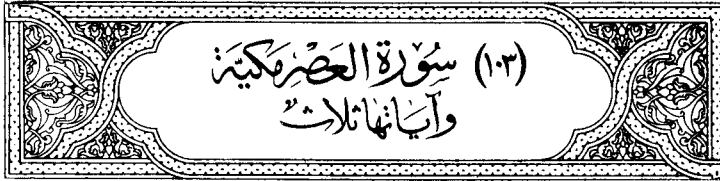 (١٠٣) سُورَةُ العَصْرِ مَكيَّة
وَآيَاتُهَا ثَلَاثٌ